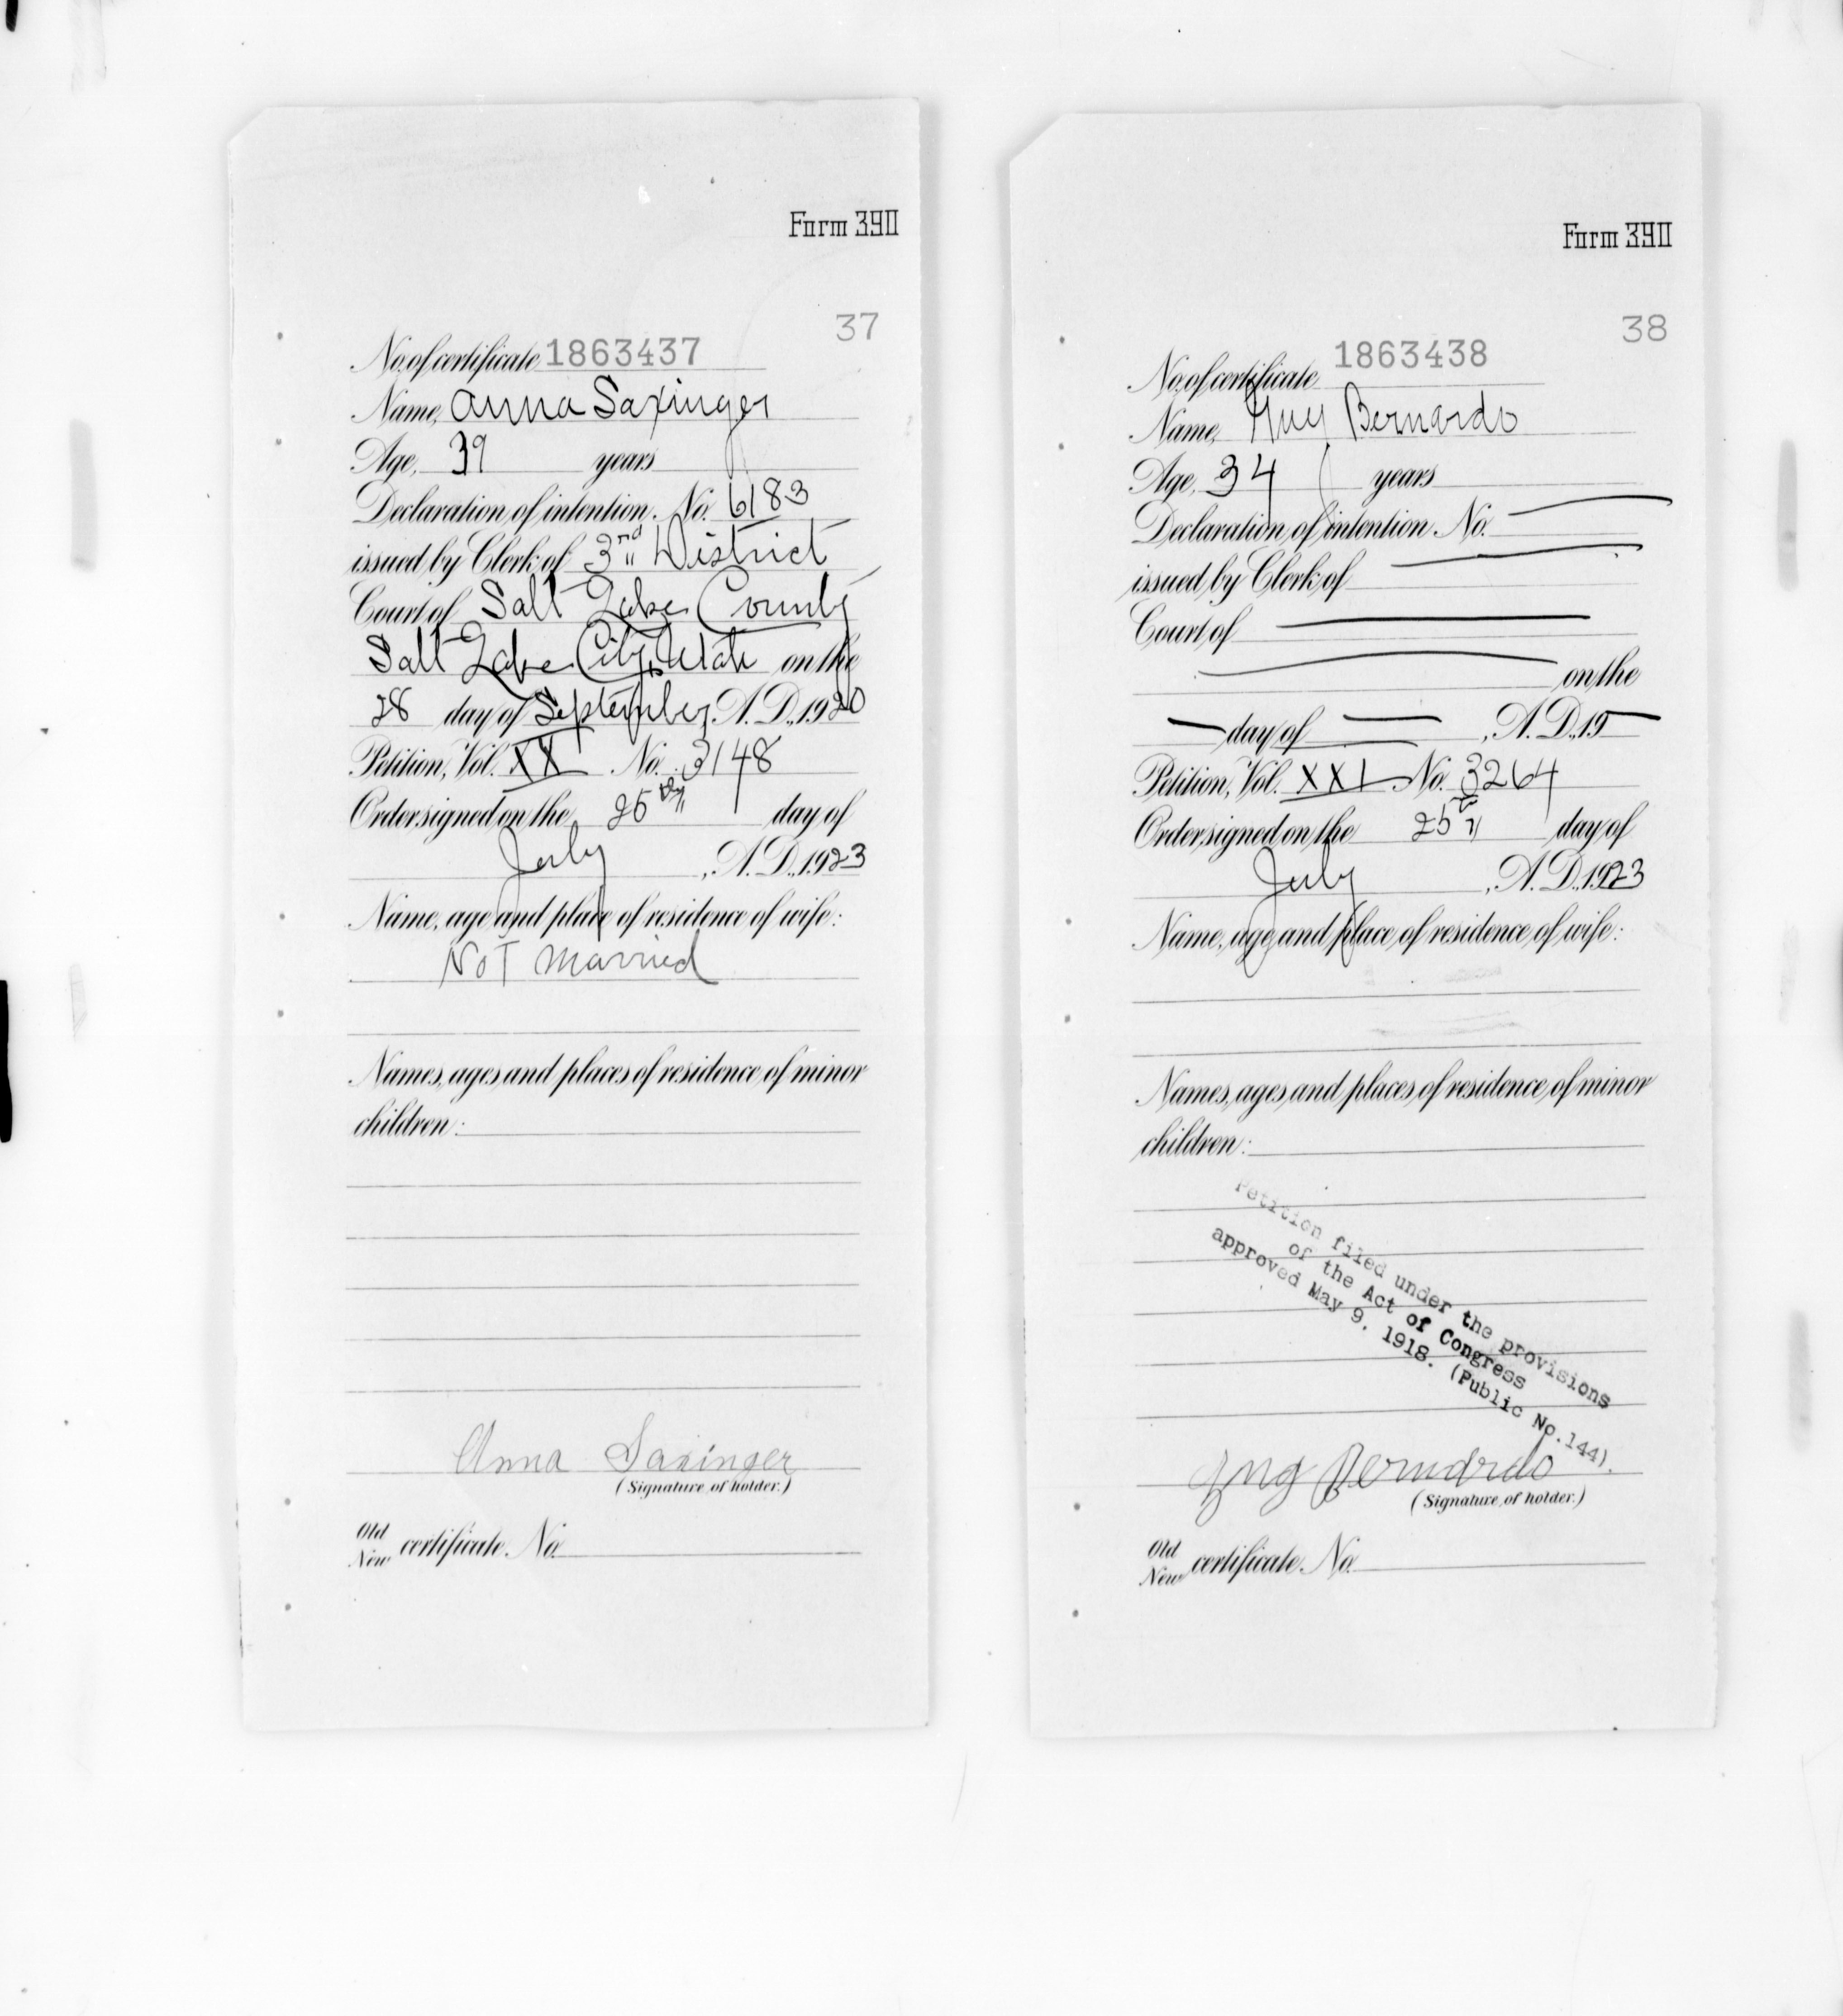 Form 390
37
No. of certificate 1863437
Name, Anna Saxinger
Age, 39 years
Declaration of intention. No. 6183
issued by Clerk of 3rd District
Court of Salt Lake County
Salt Lake City, Utah on the
28 day of September, A.D., 1920
Petition, Vol. XX No. 3148
Order signed on the 25th day of
July, A.D., 1923
Name, age and place of residence of wife:
Not Married
Names, ages and places of residence of minor
children:
Anna Saxinger
(Signature of holder.)
Old
New certificate. No.
Form 390
38
No. of certificate 1863438
Name, Guy Bernardo
Age, 34 years
Declaration of intention. No. —
issued by Clerk of —
Court of —
— on the
— day of —, A.D., 19—
Petition, Vol. XXI No. 3264
Order signed on the 25th day of
July, A.D., 1923
Name, age and place of residence of wife:
Names, ages and places of residence of minor
children:
Petition filed under the provisions
of the Act of Congress
approved May 9. 1918. (Public No.144).
Bernardo
(Signature of holder.)
Old
New certificate. No.